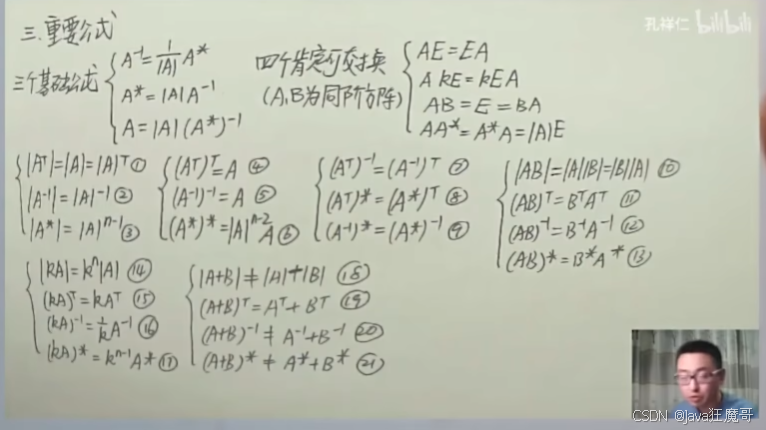 三.重要公式
孔祥仁 bilibili
三个基础公式
A⁻¹=1/|A| A*
A*=|A|A⁻¹
A=|A|(A*)⁻¹
四个肯定可交换
(A,B为同阶方阵)
AE=EA
A kE=kEA
AB=E=BA
AA*=A*A=|A|E
|Aᵀ|=|A|=|A|ᵀ ①
|A⁻¹|=|A|⁻¹ ②
|A*|=|A|ⁿ⁻¹ ③
(Aᵀ)ᵀ=A ④
(A⁻¹)⁻¹=A ⑤
(A*)*=|A|ⁿ⁻²A ⑥
(Aᵀ)⁻¹=(A⁻¹)ᵀ ⑦
(Aᵀ)*=(A*)ᵀ ⑧
(A⁻¹)*=(A*)⁻¹ ⑨
|AB|=|A||B|=|B||A| ⑩
(AB)ᵀ=BᵀAᵀ ⑪
(AB)⁻¹=B⁻¹A⁻¹ ⑫
(AB)*=B*A* ⑬
|kA|=kⁿ|A| ⑭
(kA)ᵀ=kAᵀ ⑮
(kA)⁻¹=1/k A⁻¹ ⑯
(kA)*=kⁿ⁻¹A* ⑰
|A+B|≠|A|+|B| ⑱
(A+B)ᵀ=Aᵀ+Bᵀ ⑲
(A+B)⁻¹≠A⁻¹+B⁻¹ ⑳
(A+B)*≠A*+B* ㉑
CSDN @java狂魔哥